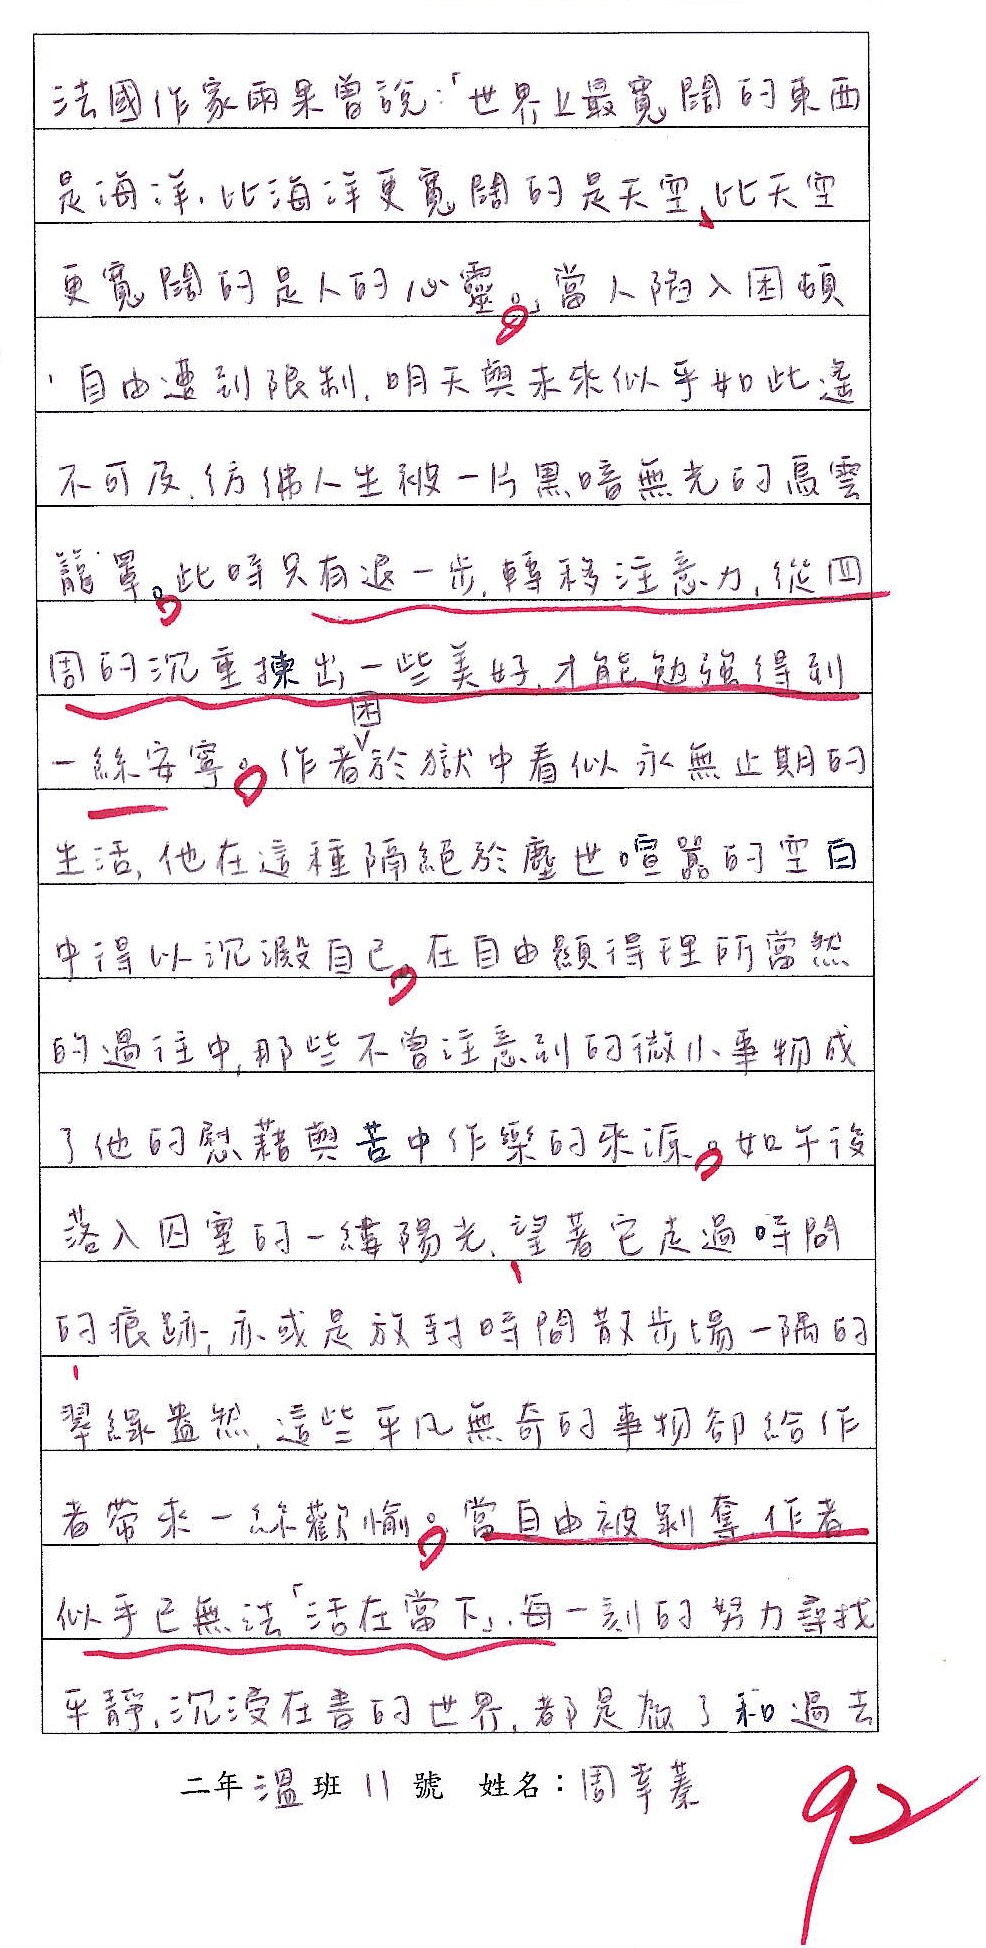 法國作家雨果曾說:「世界上最寬闊的東西
是海洋,比海洋更寬闊的是天空,比天空
更寬闊的是人的心靈。」當人陷入困頓
,自由遭到限制,明天與未來似乎如此遙
不可及,彷彿人生被一片黑暗無光的烏雲
籠罩。此時只有退一步,轉移注意力,從四
周的沉重揀出一些美好,才能勉強得到
一絲安寧。作者困於獄中看似永無止期的
生活,他在這種隔絕於塵世喧囂的空白
中得以沉澱自己,在自由顯得理所當然
的過往中,那些不曾注意到的微小事物成
了他的慰藉與苦中作樂的來源。如午後
落入囚室的一縷陽光,望著它走過時間
的痕跡,亦或是放封時間散步場一隅的
翠綠盎然,這些平凡無奇的事物卻給作
者帶來一絲歡愉。當自由被剝奪,作者
似乎已無法「活在當下」,每一刻的努力尋找
平靜,沉浸在書的世界,都是為了和過去
二年溫班11號 姓名:周幸蓁
92